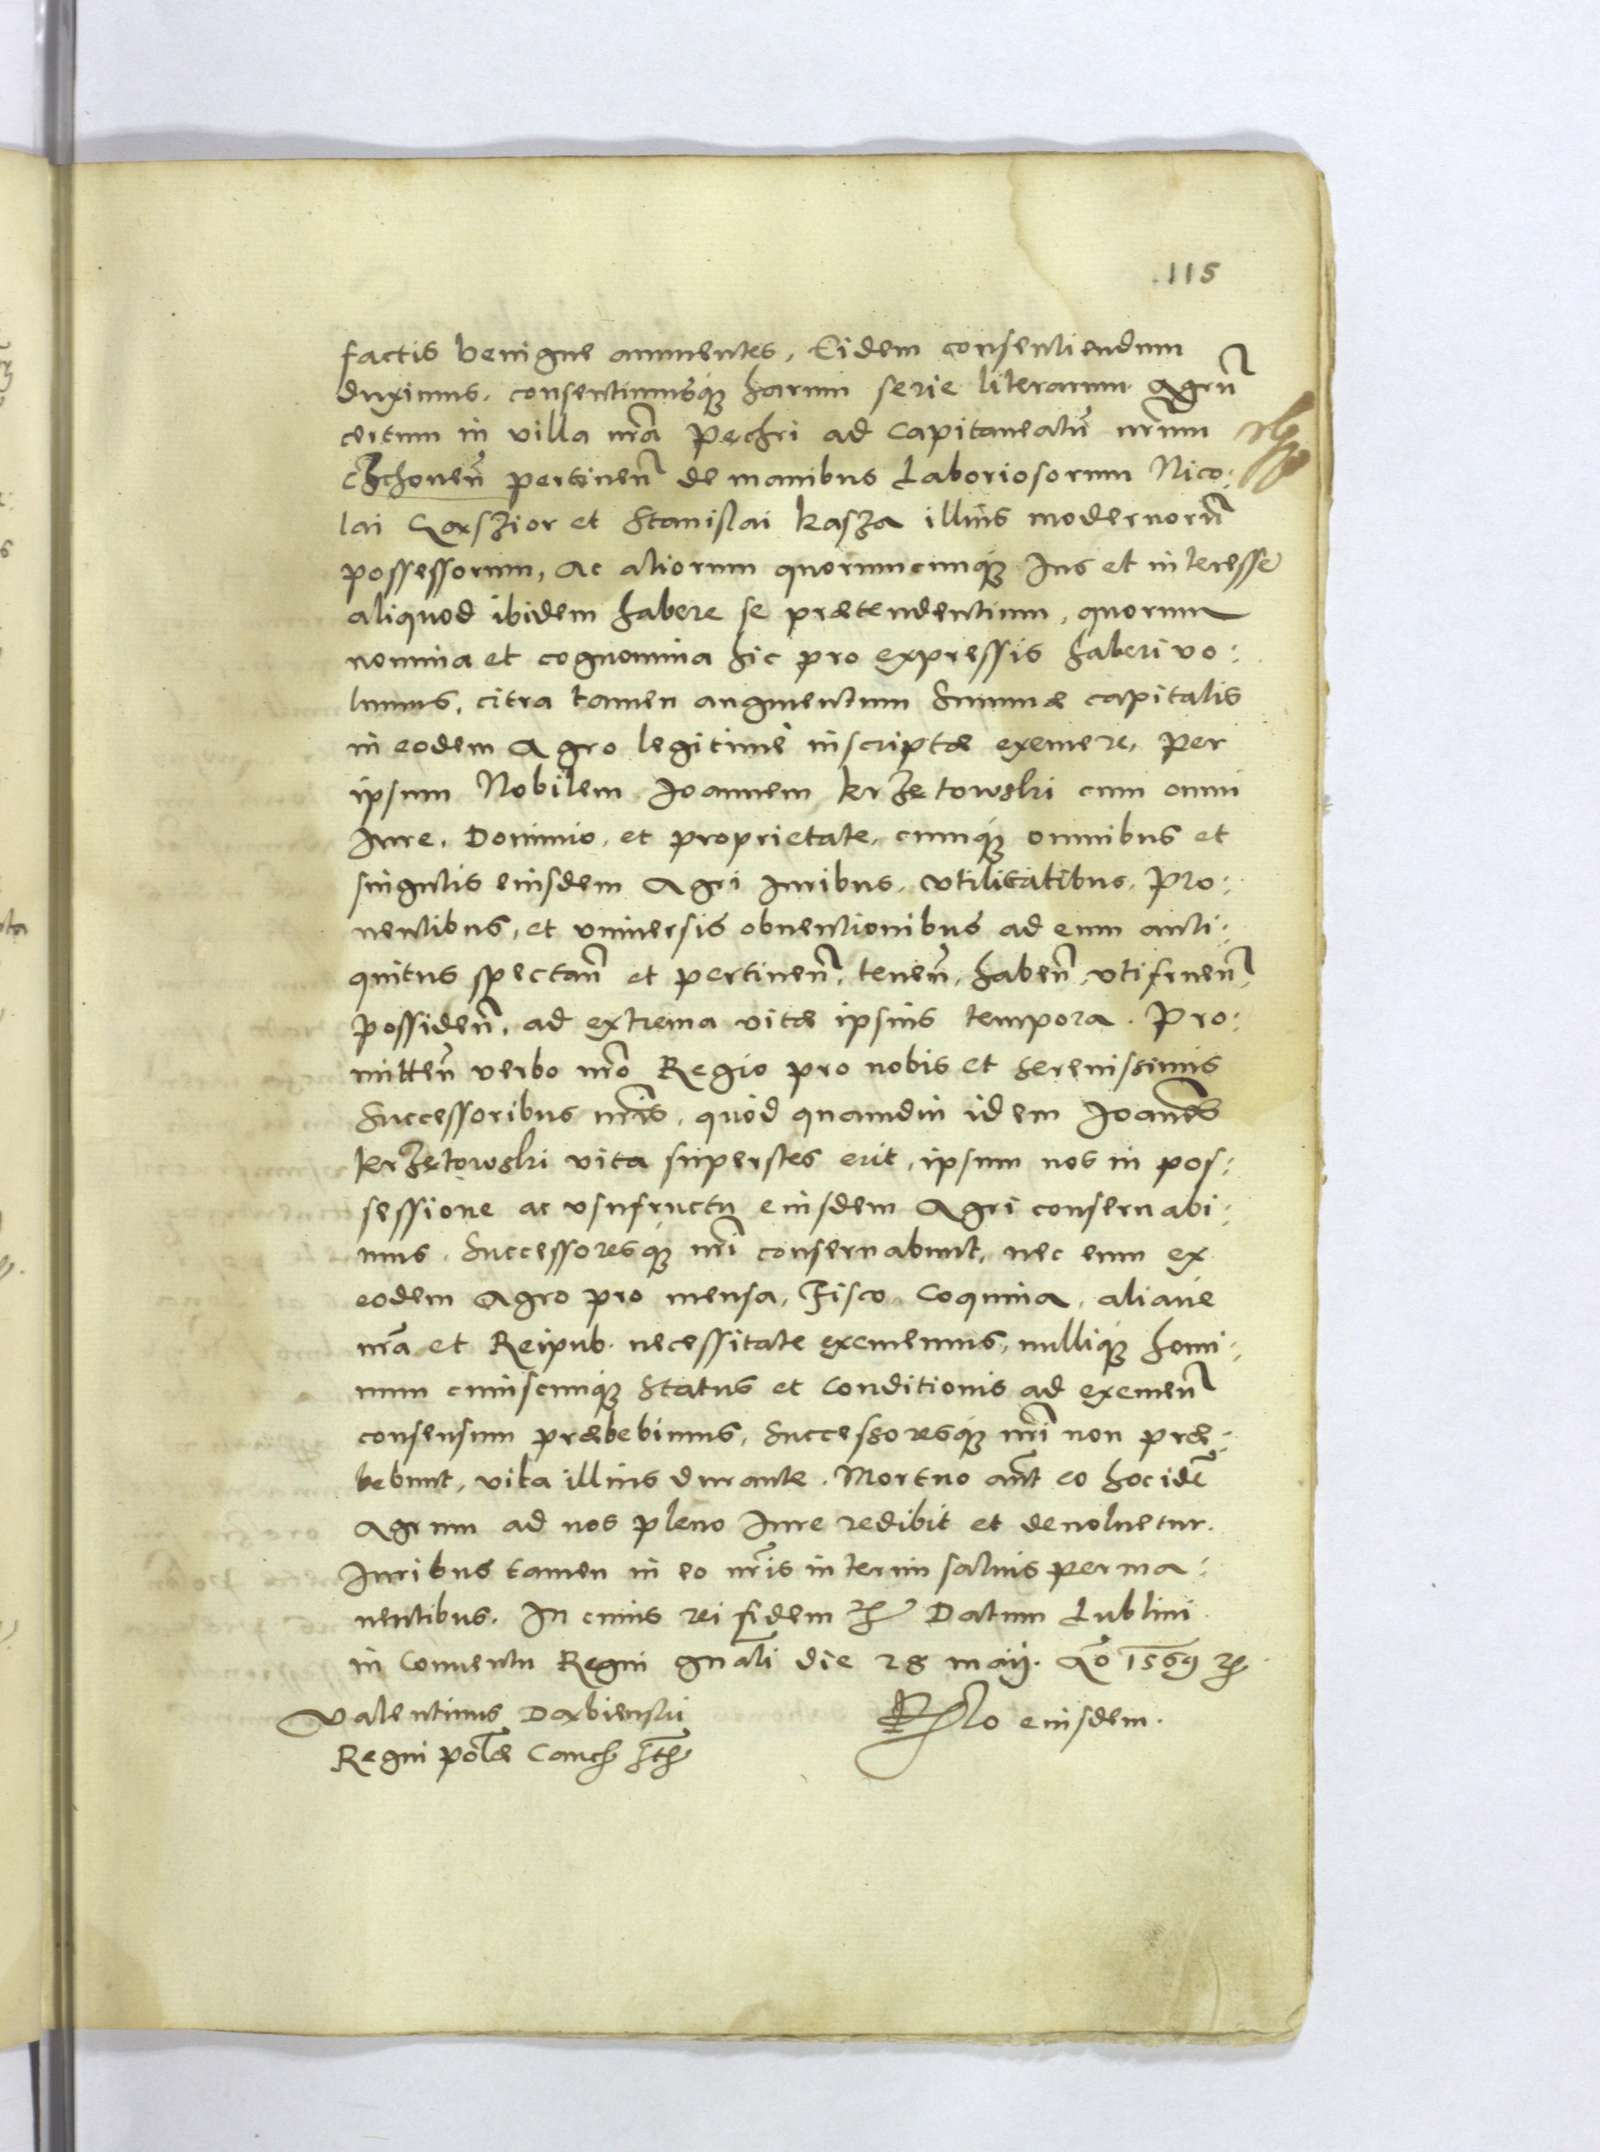 115
factis benigne annuentes, Eidem consentiendum
duximus, consentimusque harum serie literarum Agrũ
certum in villa nrã Pęchri ad Capitaneatũ nrum
pertineñ de manibus Laboriosorum Nico:
lai Gąsszior et Stanislai Kasza illius modernorũ
possessorum, Ac aliorum quorumcunque Ius et interesse
aliquod ibidem habere se prætendentium, quorum
nomina et cognomina hic pro expressis haberi vo:
lumus, citra tamen augmentum Summæ capitalis
in eodem Agro legitimè inscriptæ exemere, Per
ipsum Nobilem Ioannem Krzętowski cum omni
Iure, Dominio, et proprietate, cumque omnibus et
singulis eiusdem Agri iuribus, utilitatibus, Pro:
uentibus, et vniuersis obuentionibus ad eum anti:
quitus spectañ et pertineñ, teneñ, habeñ, vtifrueñ,
possideñ, ad extrema vitæ ipsius tempora. Pro:
mitteñ verbo nrõ Regio pro nobis et Serenissimis
Successoribus nrĩs, quòd quamdiu idem Ioanẽs
Krzętowski vita superstes erit, ipsum nos in pos:
sessione ac vsufructu eiusdem Agri conseruabi:
mus, Successoresque nrĩ conseruabunt, nec eum ex
eodem Agro pro mensa, Fisco, Coquina, aliaue
nrã et Reipub. necessitate exememus, nullique homi:
num cuiuscunque Status et Conditionis ad exemeñ
consensum præbebimus, Successoresque nrĩ non præ:
bebunt, vita illius durante. Mortuo aũt eo hoc idẽ
Agrum ad nos pleno Iure redibit et deuoluetur.
Iuribus tamen in eo nrĩs interim saluis perma:
nentibus. In cuius rei fidem etc Datum Lublini
in Conuentu Regni gnãli die 28 maij. Aõ 1569 etc.
Valentinus Dąbienski
Rlo eiusdem.
Regni Polæ Canc